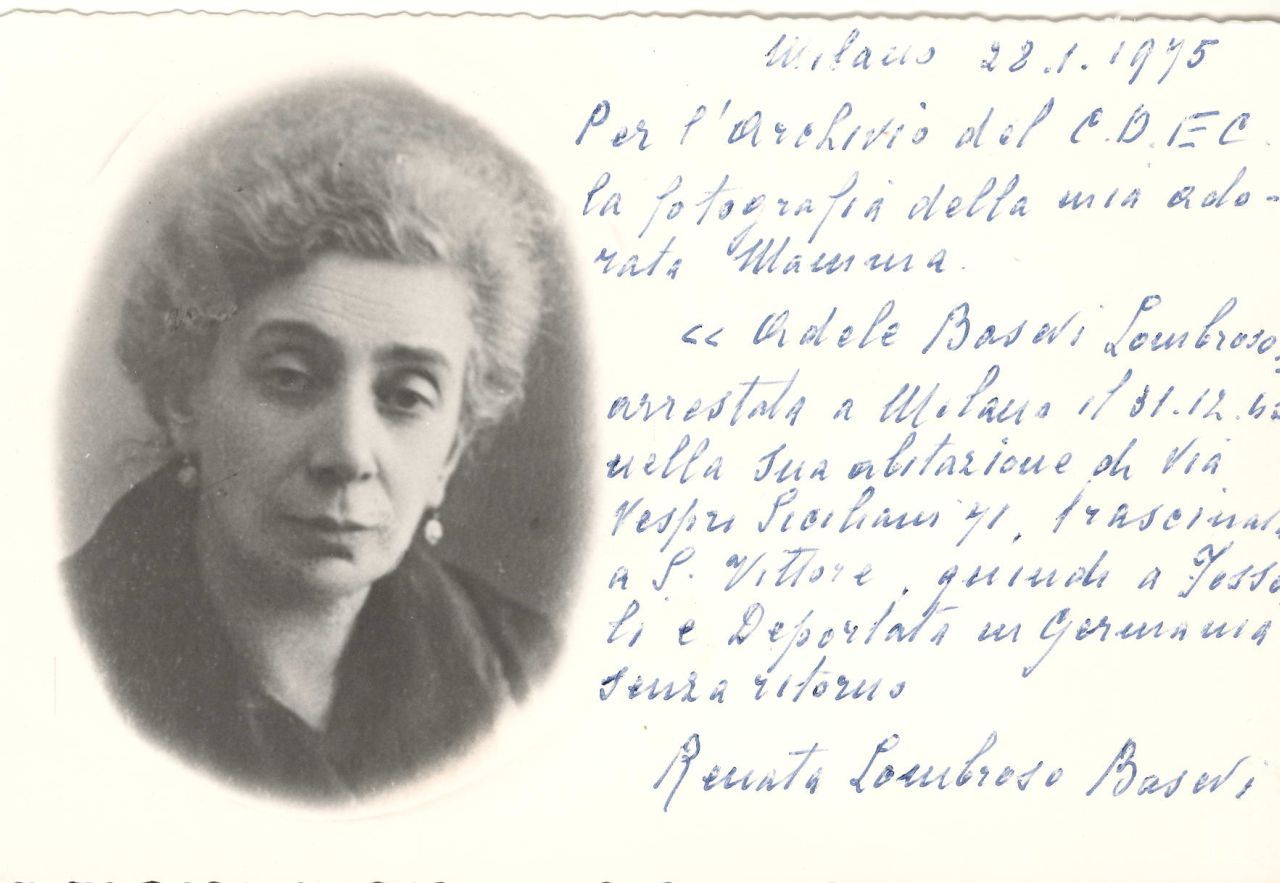 Milano 28.1.1975
Per l'Archivio del C.D.E C.
la fotografia della mia ado-
rata Mamma.
<< Adele Basevi Lombroso,
arrestata a Milano il 31.12.
nella sua abitazione di Via
Vespri Siciliani 71, trascinata
a S. Vittore, quindi a Fosso
li e Deportata in Germania
senza ritorno
Renata Lombroso Basevi